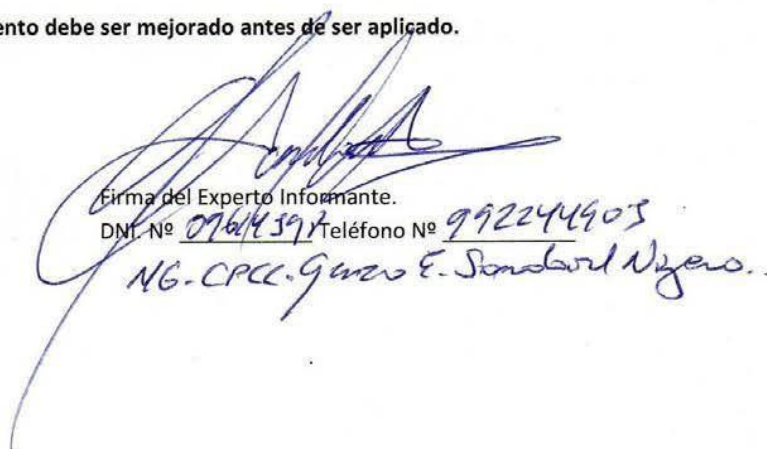 ento debe ser mejorado antes de ser aplicado.
Firma del Experto Informante.
DNI. Nº Teléfono Nº 992244903
MG. CPCC. E. Sandoval